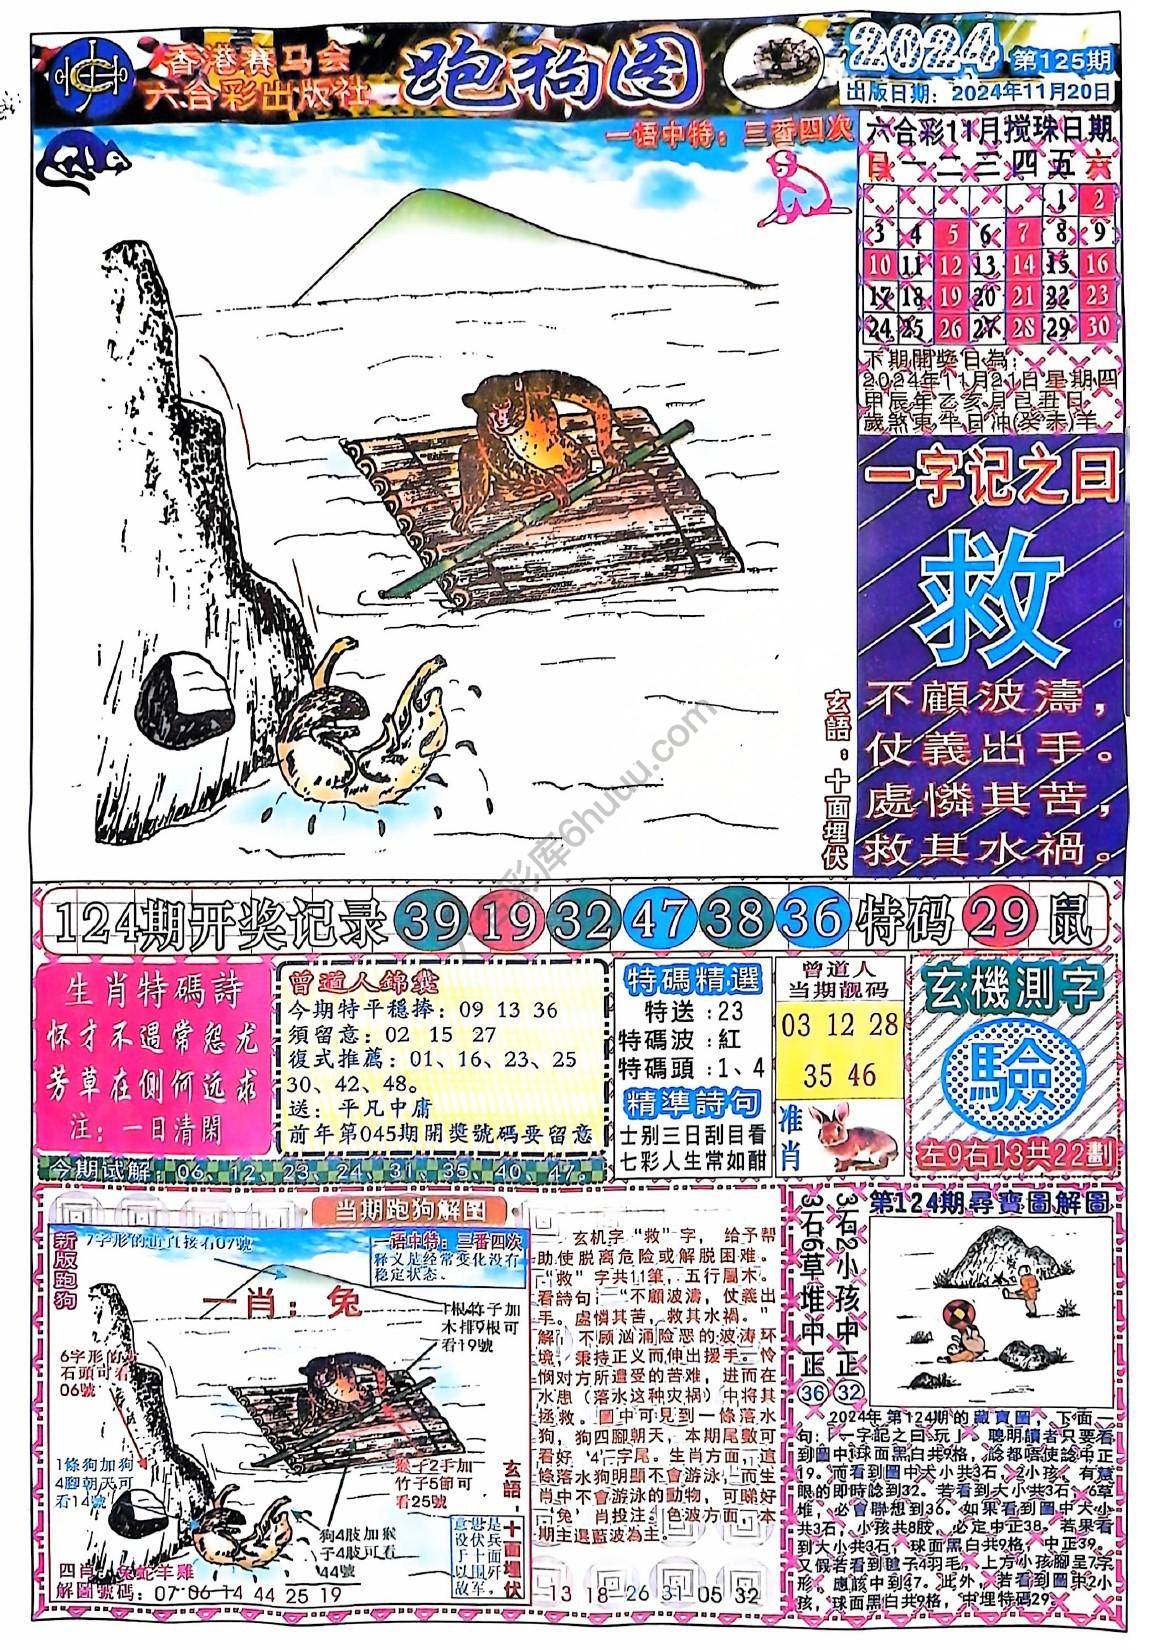 香港赛马会
六合彩出版社
跑狗图
2024 第125期
出版日期：2024年11月20日
一语中特：三番四次
六合彩11月搅珠日期
日 一 二 三 四 五 六
1 2
3 4 5 6 7 8 9
10 11 12 13 14 15 16
17 18 19 20 21 22 23
24 25 26 27 28 29 30
下期開獎日為：
2024年11月21日星期四
甲辰年乙亥月己丑日
歲煞東 牛日沖(癸未)羊
一字记之曰
救
不顧波濤，
仗義出手。
處憐其苦，
救其水禍。
玄語：十面埋伏
124期开奖记录 39 19 32 47 38 36 特码 29 鼠
生肖特碼詩
怀才不遇常怨尤
芳草在侧何远求
注：一日清閑
今期试解：06、12、23、24、31、35、40、47。
曾道人錦囊
今期特平穩捧：09 13 36
須留意：02 15 27
復式推薦：01、16、23、25
30、42、48。
送：平凡中庸
前年第045期開獎號碼要留意
特碼精選
特送：23
特碼波：紅
特碼頭：1、4
精準詩句
士别三日刮目看
七彩人生常如酣
曾道人
当期靓码
03 12 28
35 46
准肖
玄機測字
驗
左9右13共22劃
当期跑狗解图
新版跑狗
7字形的山直接看07號
一语中特：三番四次
释义是经常变化没有
稳定状态。
一肖：兔
1根竹子加
木排9根可
看19號
6字形的
石頭可看
06號
1條狗加狗
4腳朝天可
看14號
猴子2手加
竹子5節可
看25號
狗4肢加猴
子4肢可看
44號
玄語：十面埋伏
四肖：兔蛇羊雞
解圖號碼：07 06 14 44 25 19
玄机字“救”字，给予帮
助使脱离危险或解脱困难。
“救”字共11筆，五行屬木。
看詩句：“不顧波濤，仗義出
手。處憐其苦，救其水禍。”
解：不顾汹涌险恶的波涛环
境，秉持正义而伸出援手。怜
悯对方所遭受的苦难，进而在
水患（落水这种灾祸）中将其
拯救。圖中可見到一條落水
狗，狗四腳朝天，本期尾數可
看好‘4’字尾。生肖方面，這
條落水狗明顯不會游泳，而生
肖中不會游泳的動物，可睇好
‘兔’肖投注。色波方面，本
期主選藍波為主。
13 18 26 31 05 32
3石6草堆中正㊱
3石2小孩中正㉜
第124期尋寶圖解圖
2024年第124期的藏寶圖，下面
句：「一字記之曰：玩」，聰明讀者只要看
到圖中球面黑白共9格，諗都唔使諗中正
19。而看到圖中大小共3石，2小孩，有慧
眼的即時諗到32。若看到大小共3石，6草
堆，必會聯想到36。如果看到圖中大小
共3石，小孩共8肢，必定中正38。若果看
到大小共3石，球面黑白共9格，中正39。
又假若看到毽子4羽毛，上方小孩腳呈7字
形，應該中到47。此外，若看到圖中2小
孩，球面黑白共9格，中埋特碼29。
彩库6huuu.com